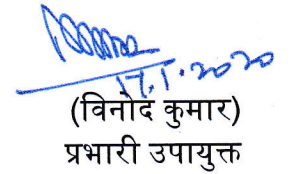 17.1.2020
(विनोद कुमार)
प्रभारी उपायुक्त